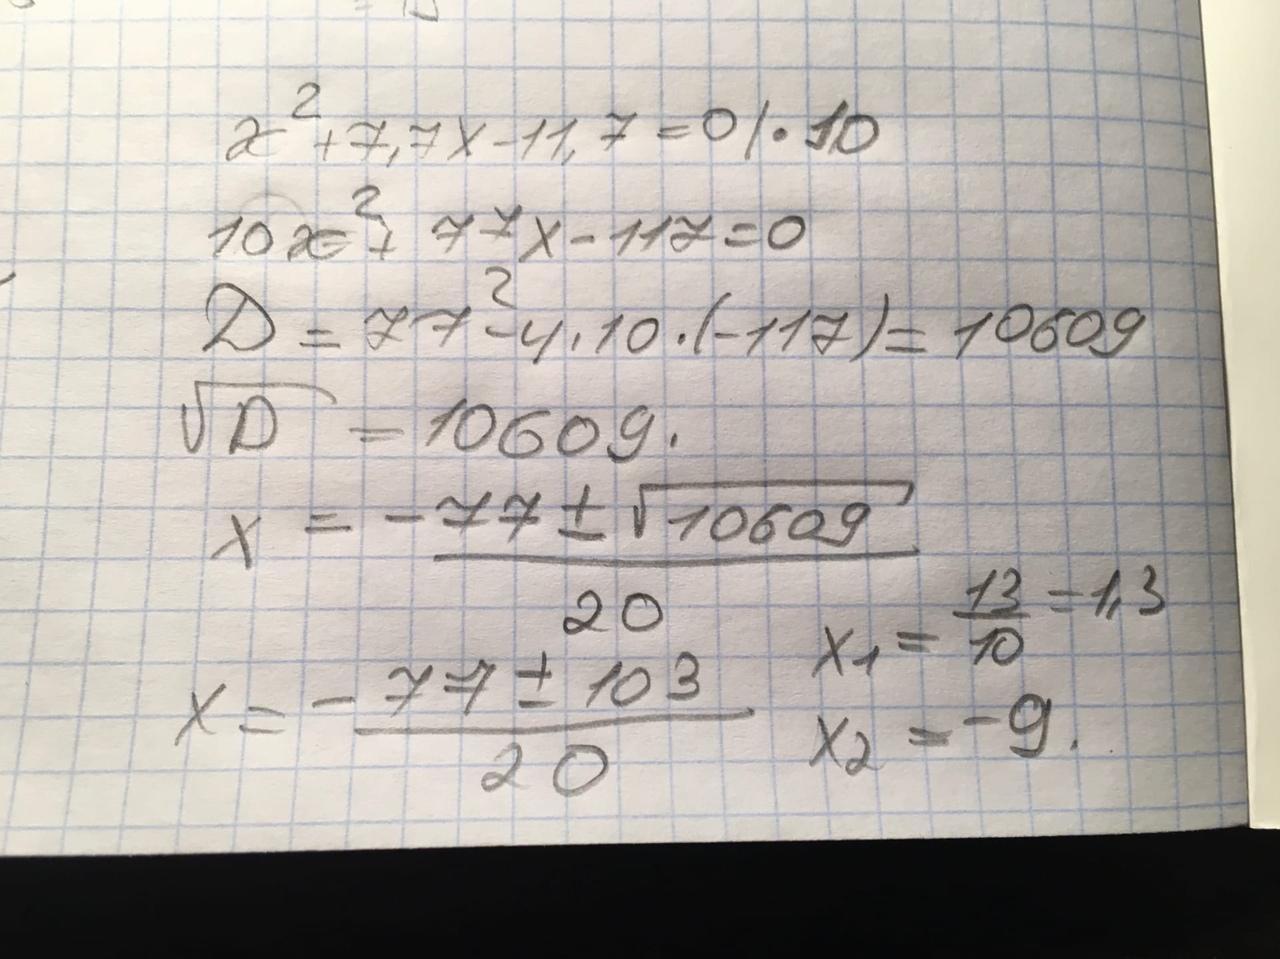 x² + 7,7x - 11,7 = 0 | · 10
10x² + 77x - 117 = 0
D = 77² - 4 · 10 · (-117) = 10609
√D = 10609.
x = (-77 ± √10609) / 20
x = (-77 ± 103) / 20
x₁ = 13/10 = 1,3
x₂ = -9.